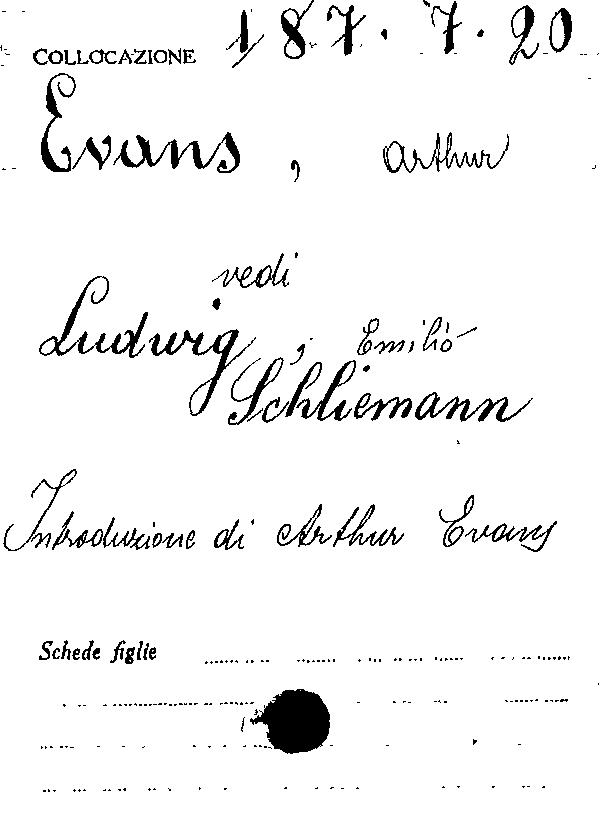 COLLOCAZIONE 187.7.20
Evans, Arthur
vedi
Ludwig, Emilio
Schliemann
Introduzione di Arthur Evans
Schede figlie